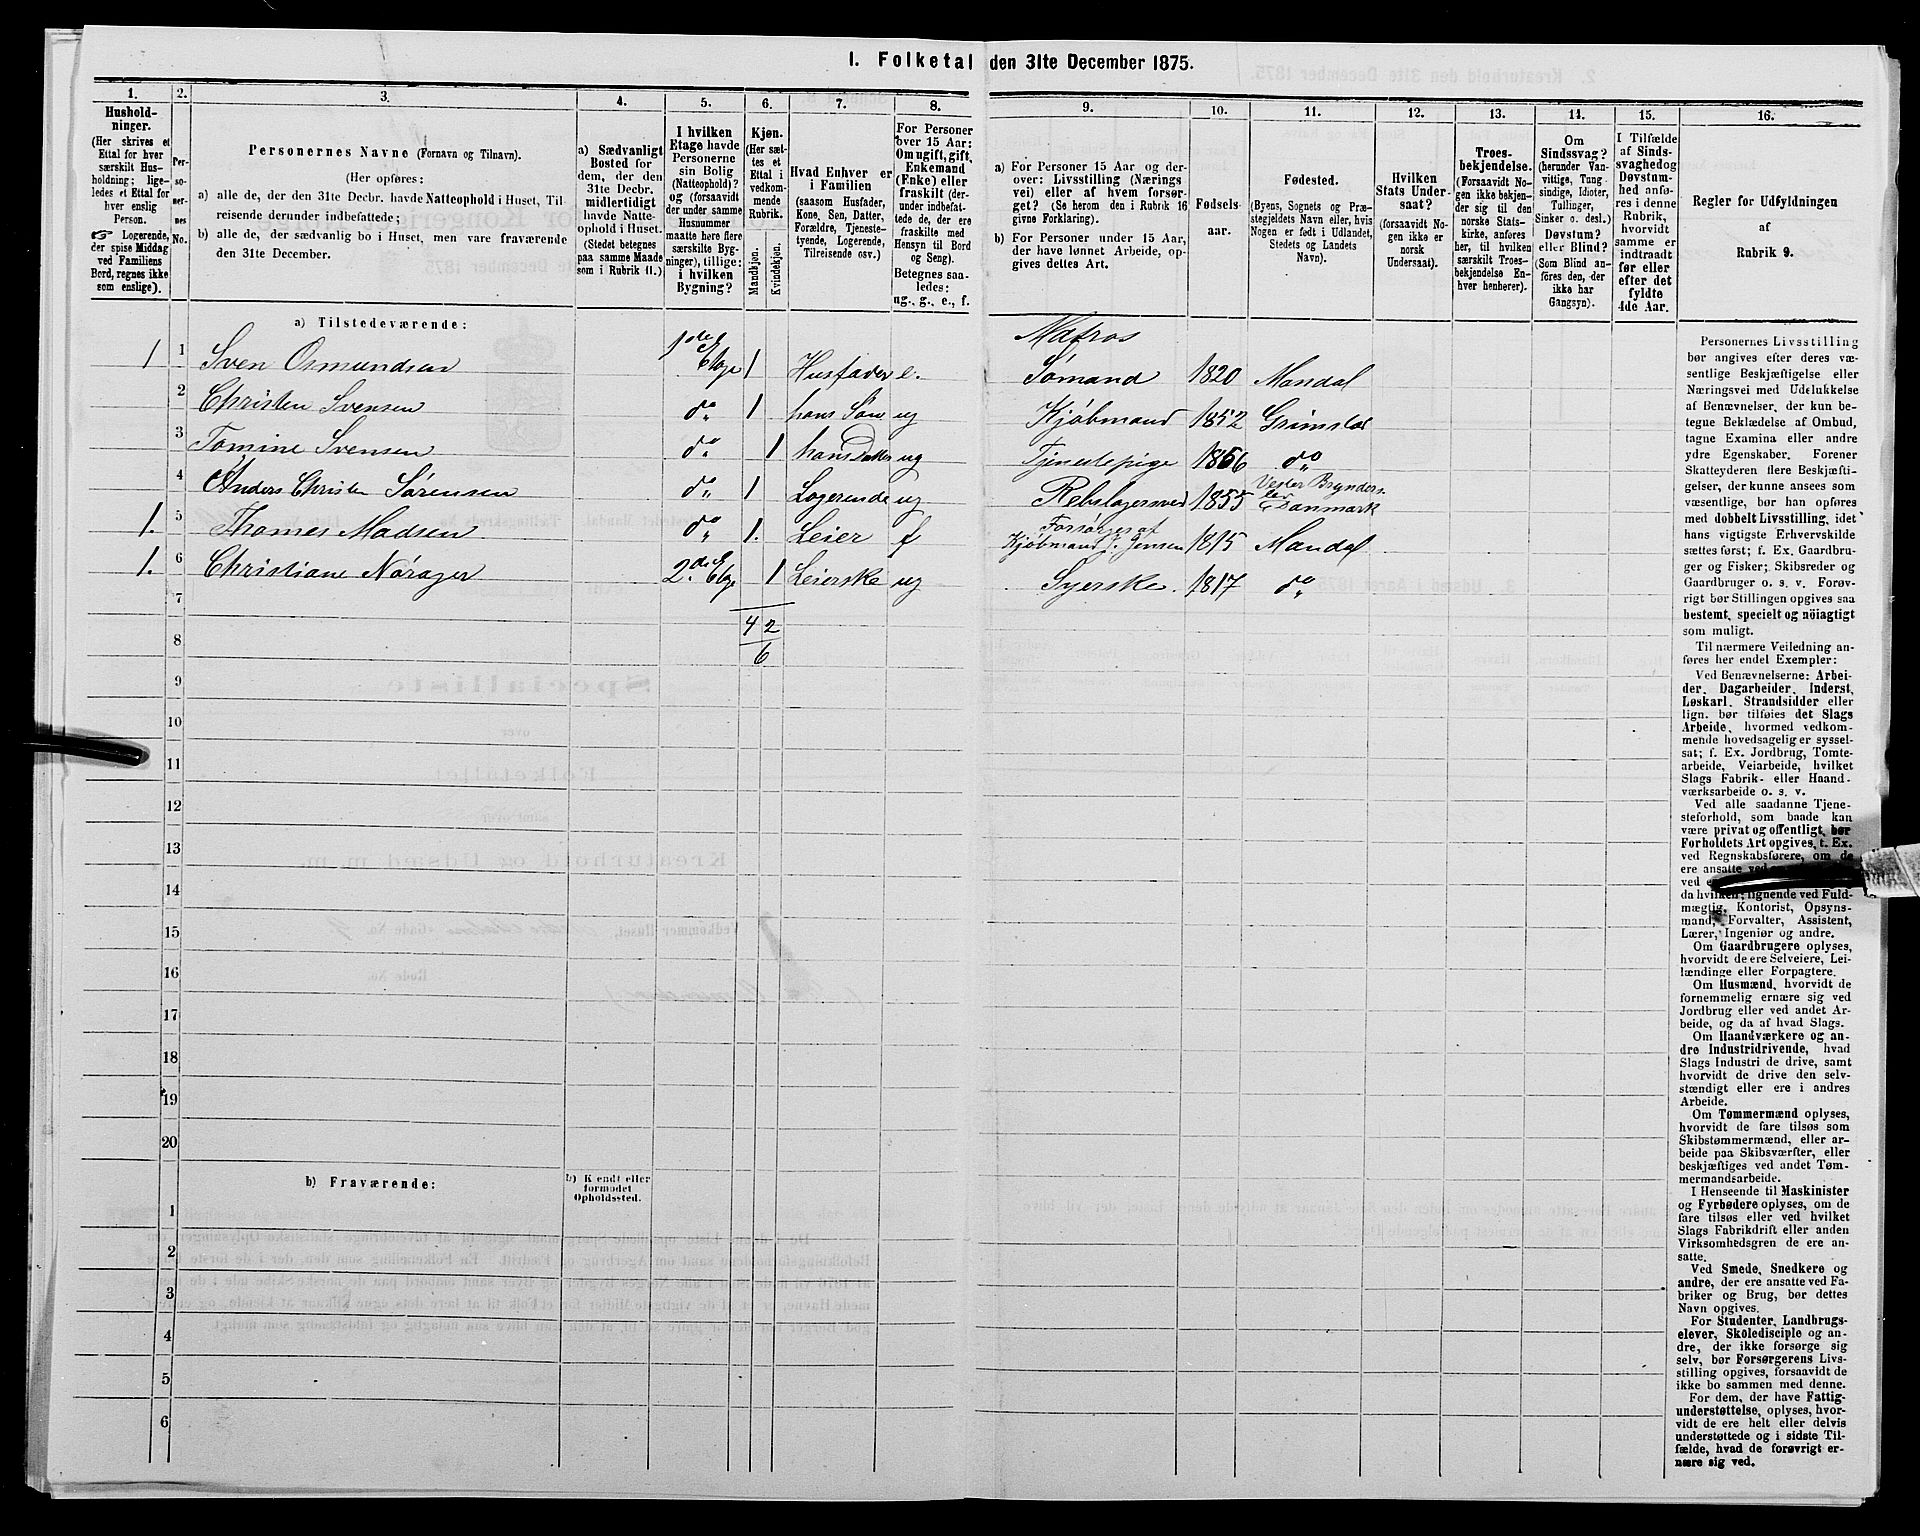 1. Folketal den 31te December 1875.
1.
Hushold-
ninger.
(Her skrives et
Ettal for hver
særskilt Hus-
holdning; lige-
ledes et Ettal for
hver enslig
Person.
Logerende,
der spise Middag
ved Familiens
Bord, regnes ikke
som enslige).
2.
Per-
so-
ner-
nes
No.
3.
Personernes Navne (Fornavn og Tilnavn).
(Her opføres:
a) alle de, der den 31te Decbr. havde Natteophold i Huset, Til-
reisende derunder indbefattede;
b) alle de, der sædvanlig bo i Huset, men vare fraværende
den 31te December.
4.
a) Sædvanligt
Bosted for
dem, der den
31te Decbr.
midlertidigt
havde Natte-
ophold i Huset.
(Stedet betegnes
paa samme Maade
som i Rubrik 11.)
5.
I hvilken
Etage havde
Personerne
sin Bolig
(Natteophold)?
og (forsaavidt
der under samme
Husnummer
maatte høre flere
særskilte Byg-
ninger), tillige:
i hvilken
Bygning?
6.
Kjøn.
(Her sæt-
tes et
Ettal i
vedkom-
mende
Rubrik.
Mandkjøn.
Kvindekjøn.
7.
Hvad Enhver er
i Familien
(saasom Husfader,
Kone, Søn, Datter,
Forældre, Tjeneste-
tyende, Logerende,
Tilreisende osv.)
8.
For Personer
over 15 Aar:
Om ugift, gift,
Enkemand
(Enke) eller
fraskilt (der-
under indbefat-
tede de, der ere
fraskilte med
Hensyn til Bord
og Seng).
Betegnes saa-
ledes:
ug., g., e., f.
9.
a) For Personer 15 Aar og der-
over: Livsstilling (Nærings
vei) eller af hvem forsør-
get? (Se herom den i Rubrik 16
givne Forklaring).
b) For Personer under 15 Aar,
der have lønnet Arbeide, op-
gives dettes Art.
10.
Fødsels-
aar.
11.
Fødested.
(Byens, Sognets og Præ-
stegjeldets Navn eller, hvis
Nogen er født i Udlandet,
Stedets og Landets
Navn).
12.
Hvilken
Stats Under-
saat?
(forsaavidt No-
gen ikke er
norsk
Undersaat).
13.
Troes-
bekjendelse.
(Forsaavidt No-
gen ikke bekjen-
der sig til den
norske Stats-
kirke, anføres
her, til hvilken
særskilt Troes-
bekjendelse En-
hver henhører).
14.
Om
Sindssvag?
(herunder Van-
vittige, Tung-
sindige, Idioter,
Tullinger,
Sinker o. desl.)
Døvstum?
eller Blind?
(Som Blind an-
føres den, der
ikke har
Gangsyn).
15.
I Tilfælde
af Sinds-
svaghed og
Døvstum-
hed anfø-
res i denne
Rubrik,
hvorvidt
samme er
indtraadt
før eller
efter det
fyldte
4de Aar.
16.
Regler for Udfyldningen
af
Rubrik 9.
a) Tilstedeværende:
1 1 Sven Osmundsen 1ste Etage 1 Husfader e. Matros Sømand 1820 Mandal
2 Christen Svensen do 1 hans Søn ug Kjøbmand 1852 Grimstad
3 Tomine Svensen do 1 hans Datter ug Tjenestepige 1856 do
4 Anders Christen Sørensen do 1 Logerende ug Rebslagersvend 1855 Vester Brynders-lev Danmark
1. 5 Thomes Madsen do 1. Leier f Forsørges af Kjøbmand J. Jensen 1815 Mandal
1. 6 Christiane Nørager 2den Etage 1 Leierske ug Syerske. 1817 do
7
4 2
8
6
9
10
11
12
13
14
15
16
17
18
19
20
b) Fraværende:
b) Kjendt eller
formodet
Opholdssted.
1
2
3
4
5
6
Personernes Livsstilling
bør angives efter deres væ-
sentlige Beskjæftigelse eller
Næringsvei med Udelukkelse
af Benævnelser, der kun be-
tegne Beklædelse af Ombud,
tagne Examina eller andre
ydre Egenskaber. Forener
Skatteyderen flere Beskjæfti-
gelser, der kunne ansees som
væsentlige, bør han opføres
med dobbelt Livsstilling, idet
hans vigtigste Erhvervskilde
sættes først; f. Ex. Gaardbru-
ger og Fisker; Skibsreder og
Gaardbruger o. s. v. Forøv-
rigt bør Stillingen opgives saa
bestemt, specielt og nöiagtigt
som muligt.
Til nærmere Veiledning an-
føres her endel Exempler:
Ved Benævnelserne: Arbei-
der, Dagarbeider, Inderst,
Løskarl, Strandsidder eller
lign. bør tilføies det Slags
Arbeide, hvormed vedkom-
mende hovedsagelig er syssel-
sat; f. Ex. Jordbrug, Tomte-
arbeide, Veiarbeide, hvilket
Slags Fabrik- eller Haand-
værksarbeide o. s. v.
Ved alle saadanne Tjene-
steforhold, som baade kan
være privat og offentligt, bør
Forholdets Art opgives, t. Ex.
ved Regnskabsførere, om de
ere ansatte ved
ved e
da hvilken; lignende ved Fuld-
mægtig, Kontorist, Opsyns-
mand, Forvalter, Assistent,
Lærer, Ingeniør og andre.
Om Gaardbrugere oplyses,
hvorvidt de ere Selveiere, Lei-
lændinge eller Forpagtere.
Om Husmænd, hvorvidt de
fornemmelig ernære sig ved
Jordbrug eller ved andet Ar-
beide, og da af hvad Slags.
Om Haandværkere og an-
dre Industridrivende, hvad
Slags Industri de drive, samt
hvorvidt de drive den selv-
stændigt eller ere i andres
Arbeide.
Om Tømmermænd oplyses,
hvorvidt de fare tilsøs som
Skibstømmermænd, eller ar-
beide paa Skibsværfter, eller
beskjæftiges ved andet Tøm-
mermandsarbeide.
I Henseende til Maskinister
og Fyrbødere oplyses, om de
fare tilsøs eller ved hvilket
Slags Fabrikdrift eller anden
Virksomhedsgren de ere an-
satte.
Ved Smede, Snedkere og
andre, der ere ansatte ved Fa-
briker og Brug, bør dettes
Navn opgives.
For Studenter, Landbrugs-
elever, Skoledisciple og an-
dre, der ikke forsørge sig
selv, bør Forsørgerens Livs-
stilling opgives, forsaavidt de
ikke bo sammen med denne.
For dem, der have Fattig-
understøttelse, oplyses, hvor-
vidt de ere helt eller delvis
understøttede og i sidste Til-
fælde, hvad de forøvrigt er-
nære sig ved.